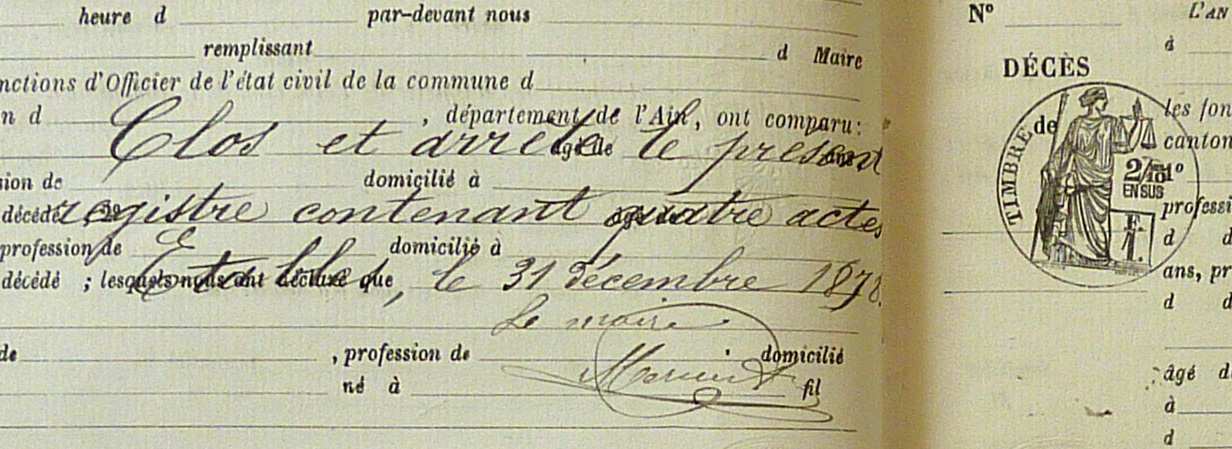 heure d par-devant nous
remplissant d Maire
nctions d'Officier de l'état civil de la commune d
n d , département de l'Ain, ont comparu:
Clos et arrêté le présent
sion de domicilié à
décédé registre contenant quatre actes
profession de domicilié à
décédé ; lesquels nous ont déclaré que
Etables, le 31 décembre 1878.
Le maire
de , profession de domicilié
né à fil
N° L'AN
à
DÉCÈS
les fon
canton
TIMBRE de
2/10 1°
EN SUS
professi
d d
ans, pr
d d
âgé d
à
d